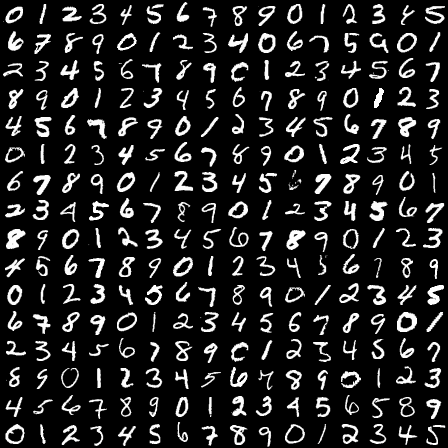 0 1 2 3 4 5 6 7 8 9 0 1 2 3 4 5
6 7 8 9 0 1 2 3 4 0 6 7 5 9 0 1
2 3 4 5 6 7 8 9 0 1 2 3 4 5 6 7
8 9 0 1 2 3 4 5 6 7 8 9 0 1 2 3
4 5 6 7 8 9 0 1 2 3 4 5 6 7 8 9
0 1 2 3 4 5 6 7 8 9 0 1 2 3 4 5
6 7 8 9 0 1 2 3 4 5 6 7 8 9 0 1
2 3 4 5 6 7 8 9 0 1 2 3 4 5 6 7
8 9 0 1 2 3 4 5 6 7 8 9 0 1 2 3
4 5 6 7 8 9 0 1 2 3 4 5 6 7 8 9
0 1 2 3 4 5 6 7 8 9 0 1 2 3 4 5
6 7 8 9 0 1 2 3 4 5 6 7 8 9 0 1
2 3 4 5 6 7 8 9 0 1 2 3 4 5 6 7
8 9 0 1 2 3 4 5 6 7 8 9 0 1 2 3
4 5 6 7 8 9 0 1 2 3 4 5 6 5 8 9
0 1 2 3 4 5 6 7 8 9 0 1 2 3 4 5